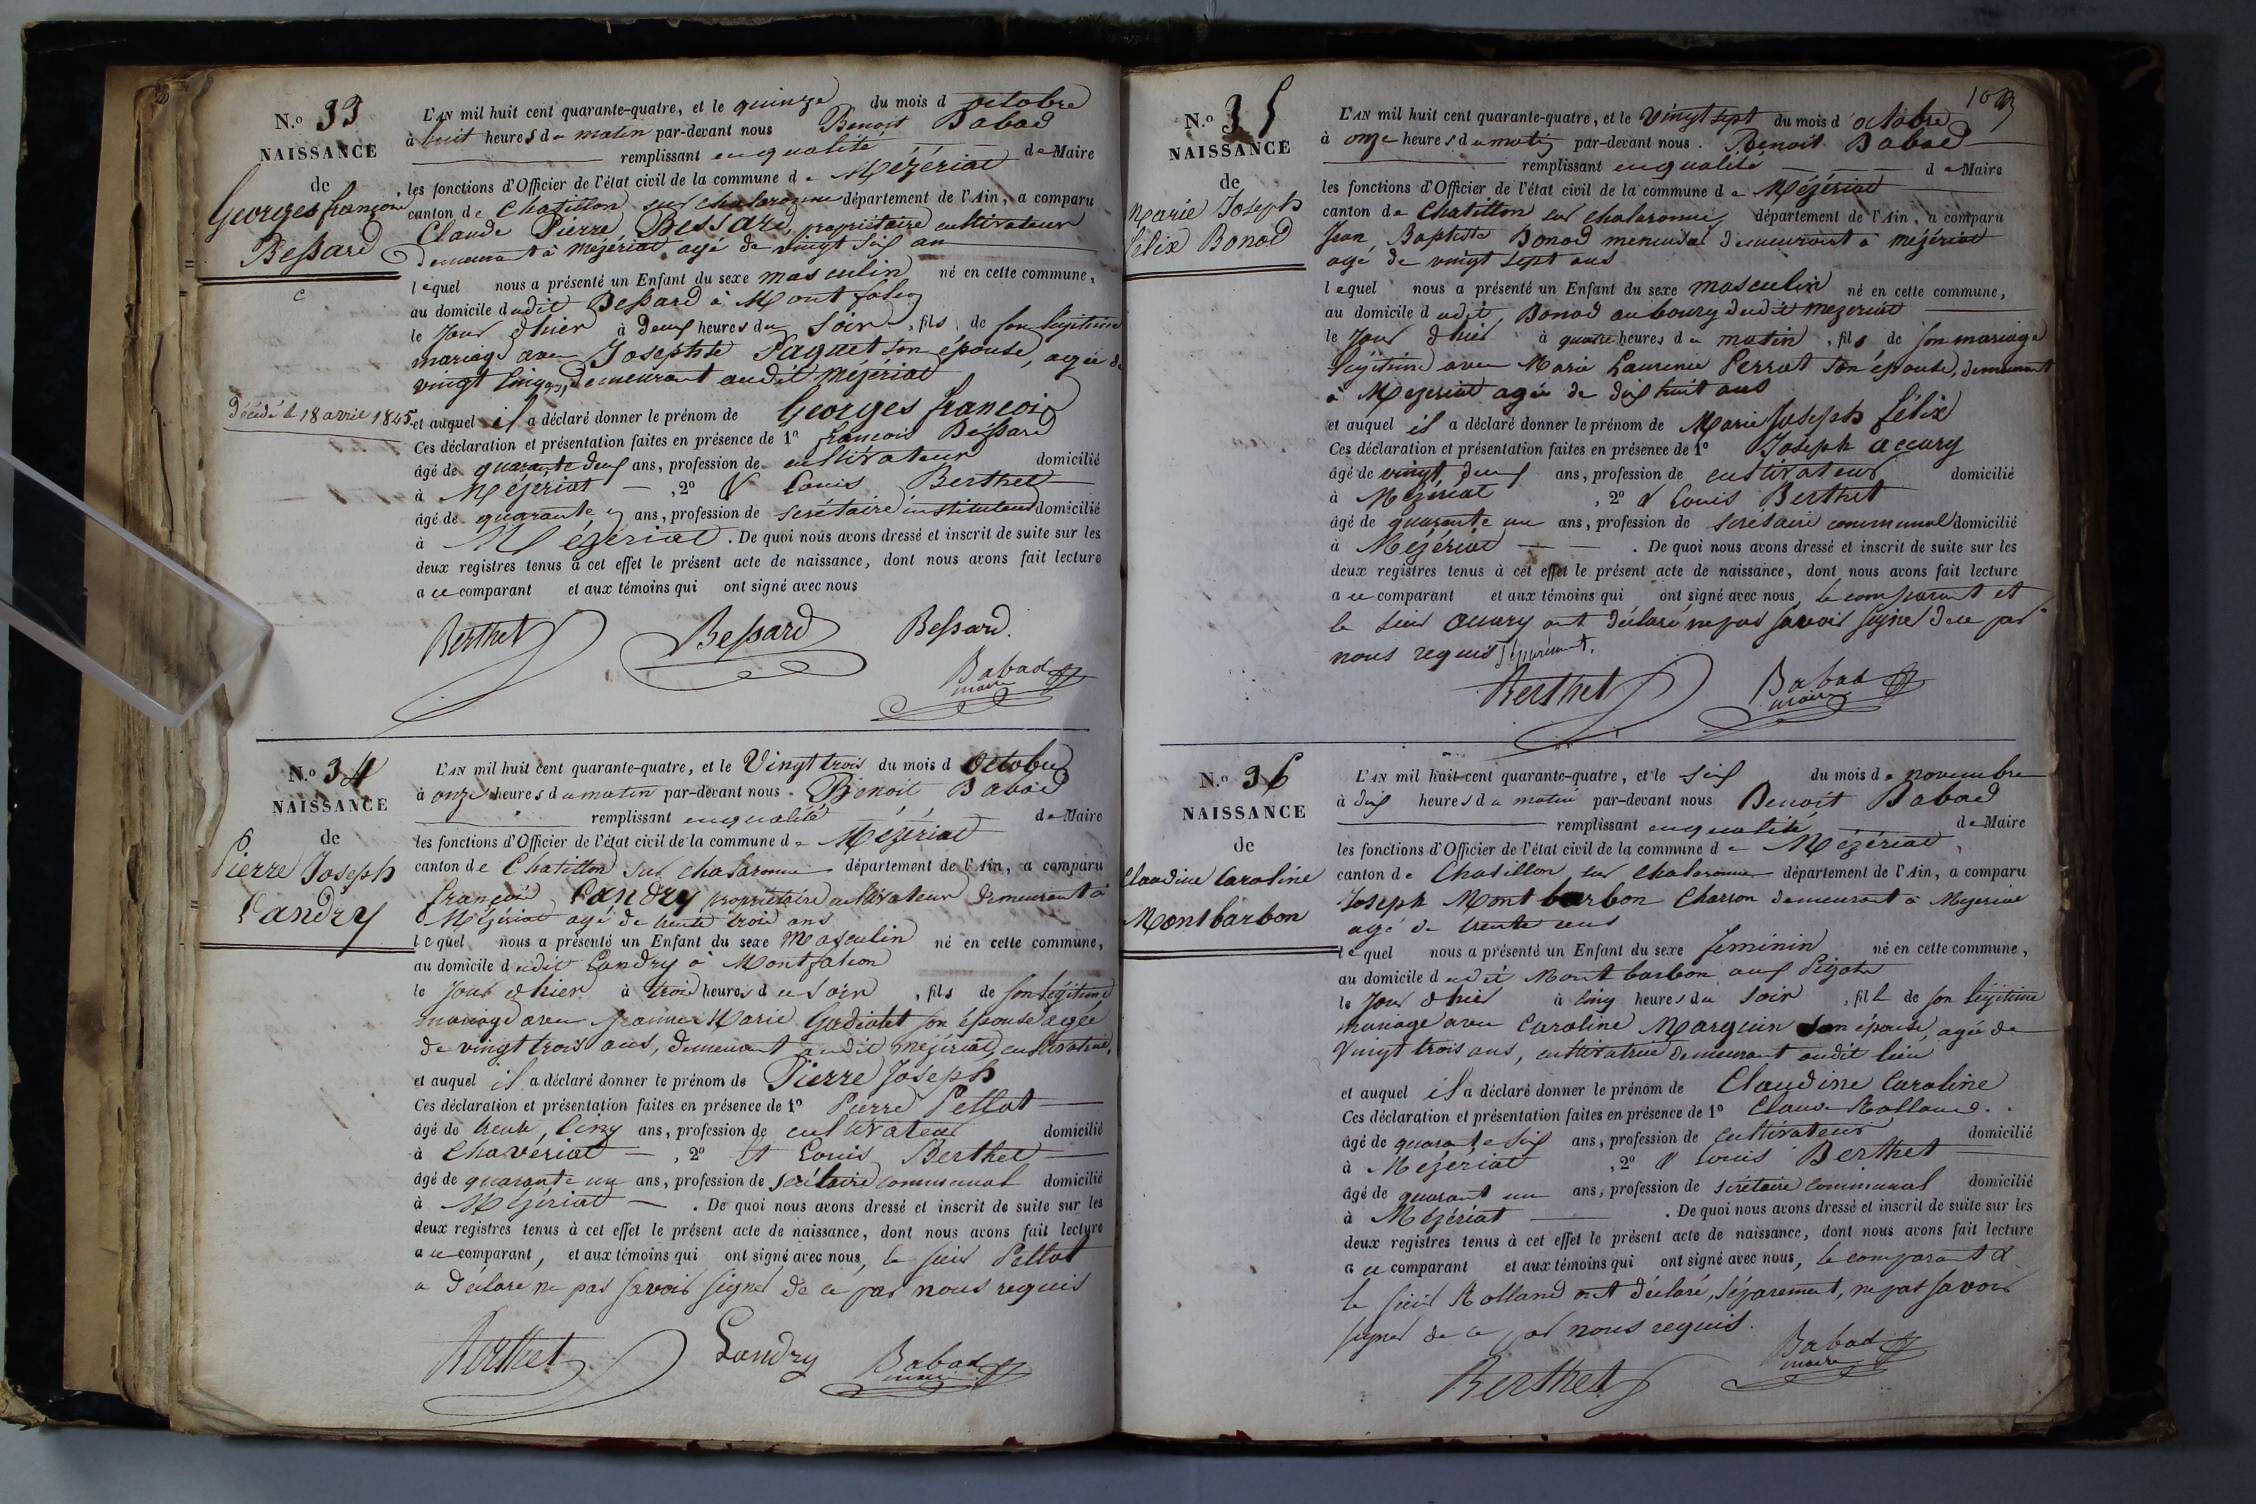 N.º 33
NAISSANCE
de
Georges françois
Bessard
Décédé le 18 avril 1845.
L'AN mil huit cent quarante-quatre, et le quinze du mois d octobre
à huit heures du matin par-devant nous Benoit Babad
remplissant en qualité de Maire
les fonctions d'Officier de l'état civil de la commune de Mézériat
canton de Chatillon sur chalaronne département de l'Ain, a comparu
Claude Pierre Bessard, propriétaire cultivateur
demeurant à Mézériat agé de vingt six an
lequel nous a présenté un Enfant du sexe masculin né en cette commune,
au domicile dudit Bessard à Montfalcon
le jour d'hier à deux heures du soir, fils de son légitime
mariage avec Josephte Paquet son épouse, agée de
vingt cinq ans, demeurant audit Mézériat
et auquel il a déclaré donner le prénom de Georges françois
Ces déclaration et présentation faites en présence de 1º françois Bessard
âgé de quarante deux ans, profession de cultivateur domicilié
à Mézériat, 2º & Louis Berthet
âgé de quarante un ans, profession de secrétaire instituteur domicilié
à Mézériat. De quoi nous avons dressé et inscrit de suite sur les
deux registres tenus à cet effet le présent acte de naissance, dont nous avons fait lecture
a ce comparant et aux témoins qui ont signé avec nous
Berthet Bessard Bessard.
Babad
maire
N.º 34
NAISSANCE
de
Pierre Joseph
Landry
L'AN mil huit cent quarante-quatre, et le Vingt trois du mois d octobre
à onze heures du matin par-devant nous Benoit Babad
remplissant en qualité de Maire
les fonctions d'Officier de l'état civil de la commune de Mézériat
canton de Chatillon sur chalaronne département de l'Ain, a comparu
françois Landry propriétaire cultivateur demeurant à
Mézériat agé de trente trois ans
lequel nous a présenté un Enfant du sexe Masculin né en cette commune,
au domicile dudit Landry à Montfalcon
le jour d'hier à trois heures du soir, fils de son légitime
mariage avec Jeanne Marie Gadiolet son épouse agée
de vingt trois ans, demeurant audit Mézériat, cultivatrice,
et auquel il a déclaré donner le prénom de Pierre Joseph
Ces déclaration et présentation faites en présence de 1º Pierre Pellot
âgé de trente cinq ans, profession de cultivateur domicilié
à Chaveriat, 2º et Louis Berthet
âgé de quarante un ans, profession de secrétaire communal domicilié
à Mézériat. De quoi nous avons dressé et inscrit de suite sur les
deux registres tenus à cet effet le présent acte de naissance, dont nous avons fait lecture
a ce comparant, et aux témoins qui ont signé avec nous, le sieur Pellot
a déclaré ne pas savoir signer de ce par nous requis
Berthet Landry Babad
maire
103
N.º 35
NAISSANCE
de
Marie Joseph
félix Bonod
L'AN mil huit cent quarante-quatre, et le Vingt sept du mois d octobre
à onze heures du matin par-devant nous. Benoit Babad
remplissant en qualité de Maire
les fonctions d'Officier de l'état civil de la commune de Mézériat
canton de Chatillon sur chalaronne, département de l'Ain, a comparu
Jean Baptiste Bonod menuisier demeurant à Mézériat
agé de vingt sept ans
lequel nous a présenté un Enfant du sexe masculin né en cette commune,
au domicile dudit Bonod au bourg dudit Mezeriat
le jour d'hier à quatre heures du matin, fils de son mariage
légitime avec Marie Laurence Perrat son épouse, demeurant
à Mezeriat agée de dix huit ans
et auquel il a déclaré donner le prénom de Marie Joseph félix
Ces déclaration et présentation faites en présence de 1º Joseph accury
âgé de vingt deux ans, profession de cultivateur domicilié
à Mézériat, 2º & Louis Berthet
âgé de quarante un ans, profession de secrétaire communal domicilié
à Mézériat. De quoi nous avons dressé et inscrit de suite sur les
deux registres tenus à cet effet le présent acte de naissance, dont nous avons fait lecture
a ce comparant et aux témoins qui ont signé avec nous, le comparant et
le sieur accury ont déclaré ne pas savoir signer de ce par
nous requis séparément.
Berthet Babad
maire
N.º 36
NAISSANCE
de
Claudine Caroline
Montbarbon
L'AN mil huit cent quarante-quatre, et le six du mois de novembre
à dix heures du matin par-devant nous Benoit Babad
remplissant en qualité de Maire
les fonctions d'Officier de l'état civil de la commune de Mézériat,
canton de Chatillon sur chalaronne département de l'Ain, a comparu
Joseph Montbarbon Charron demeurant à Mezeriat
agé de trente ans
lequel nous a présenté un Enfant du sexe feminin né en cette commune,
au domicile dudit Montbarbon aux
le jour d'hier à cinq heures du soir, fille de son légitime
mariage avec Caroline Marguin son épouse, agée de
vingt trois ans, cultivatrice demeurant audit lieu
et auquel il a déclaré donner le prénom de Claudine Caroline
Ces déclaration et présentation faites en présence de 1º Claude Rolland.
âgé de quarante six ans, profession de cultivateur domicilié
à Mézériat, 2º & Louis Berthet
âgé de quarant un ans, profession de secrétaire communal domicilié
à Mézériat. De quoi nous avons dressé et inscrit de suite sur les
deux registres tenus à cet effet le présent acte de naissance, dont nous avons fait lecture
a ce comparant et aux témoins qui ont signé avec nous, le comparant &
le sieur Rolland ont déclaré, séparement, ne pas savoir
signer de ce par nous requis.
Berthet Babad
maire